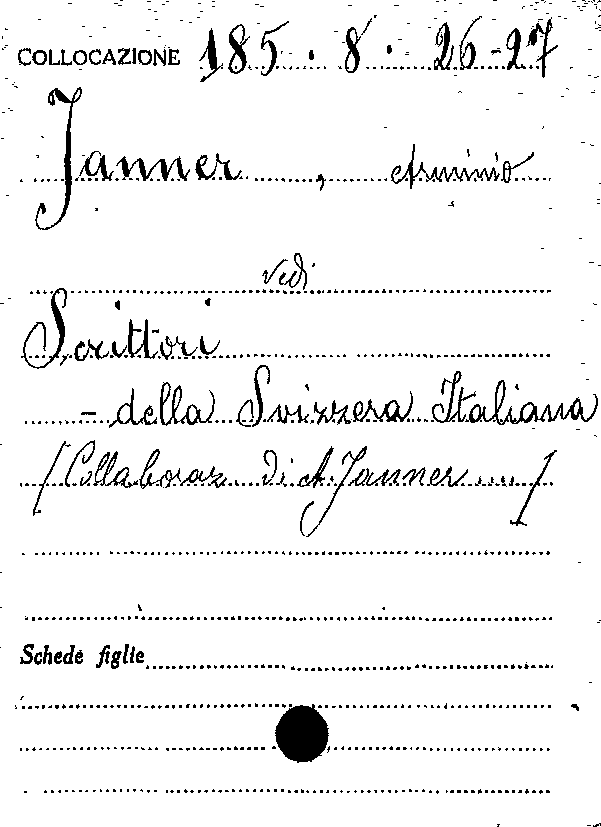 COLLOCAZIONE 185.8.26-27
Janner, Arminio
vedi
Scrittori
- della Svizzera Italiana
/Collaboraz. di A. Janner..../
Schede figlie